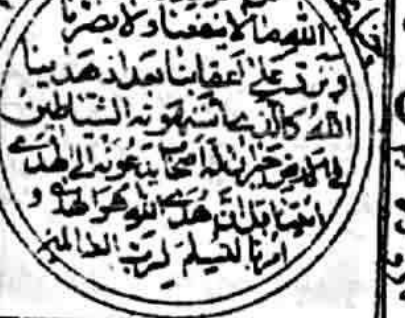 الله مالا ينفعنا ولا يضرنا
و نرد على اعقابنا بعد اذ هدينا
الله كالذي استهوته الشياطين
في الارض حيران له اصحاب يدعونه الى الهدى
ائتنا قل ان هدى الله هو الهدى و
امرنا لنسلم لرب العالمين